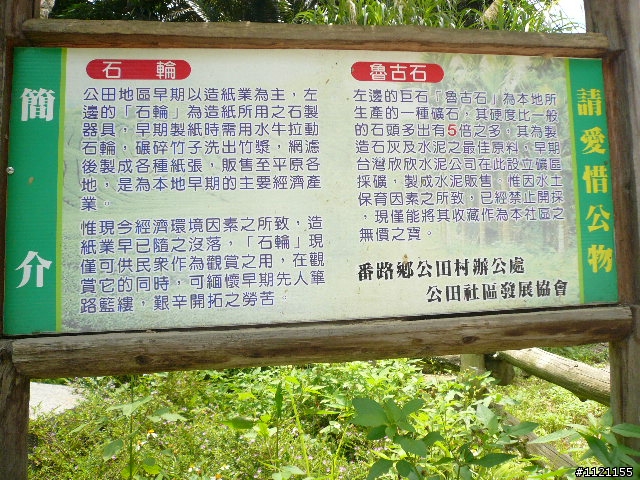 簡介
石輪
公田地區早期以造紙業為主，左
邊的「石輪」為造紙所用之石製
器具，早期製紙時需用水牛拉動
石輪，碾碎竹子洗出竹漿，網濾
後製成各種紙張，販售至平原各
地，是為本地早期的主要經濟產
業。
惟現今經濟環境因素之所致，造
紙業早已隨之沒落，「石輪」現
僅可供民衆作為觀賞之用，在觀
賞它的同時，可緬懷早期先人篳
路藍縷，艱辛開拓之勞苦。
魯古石
左邊的巨石「魯古石」為本地所
生產的一種礦石，其硬度比一般
的石頭多出有5倍之多，其為製
造石灰及水泥之最佳原料，早期
台灣欣欣水泥公司在此設立礦區
採礦，製成水泥販售，惟因水土
保育因素之所致，已經禁止開採
，現僅能將其收藏作為本社區之
無價之寶。
番路鄉公田村辦公處
公田社區發展協會
請愛惜公物
#1121155